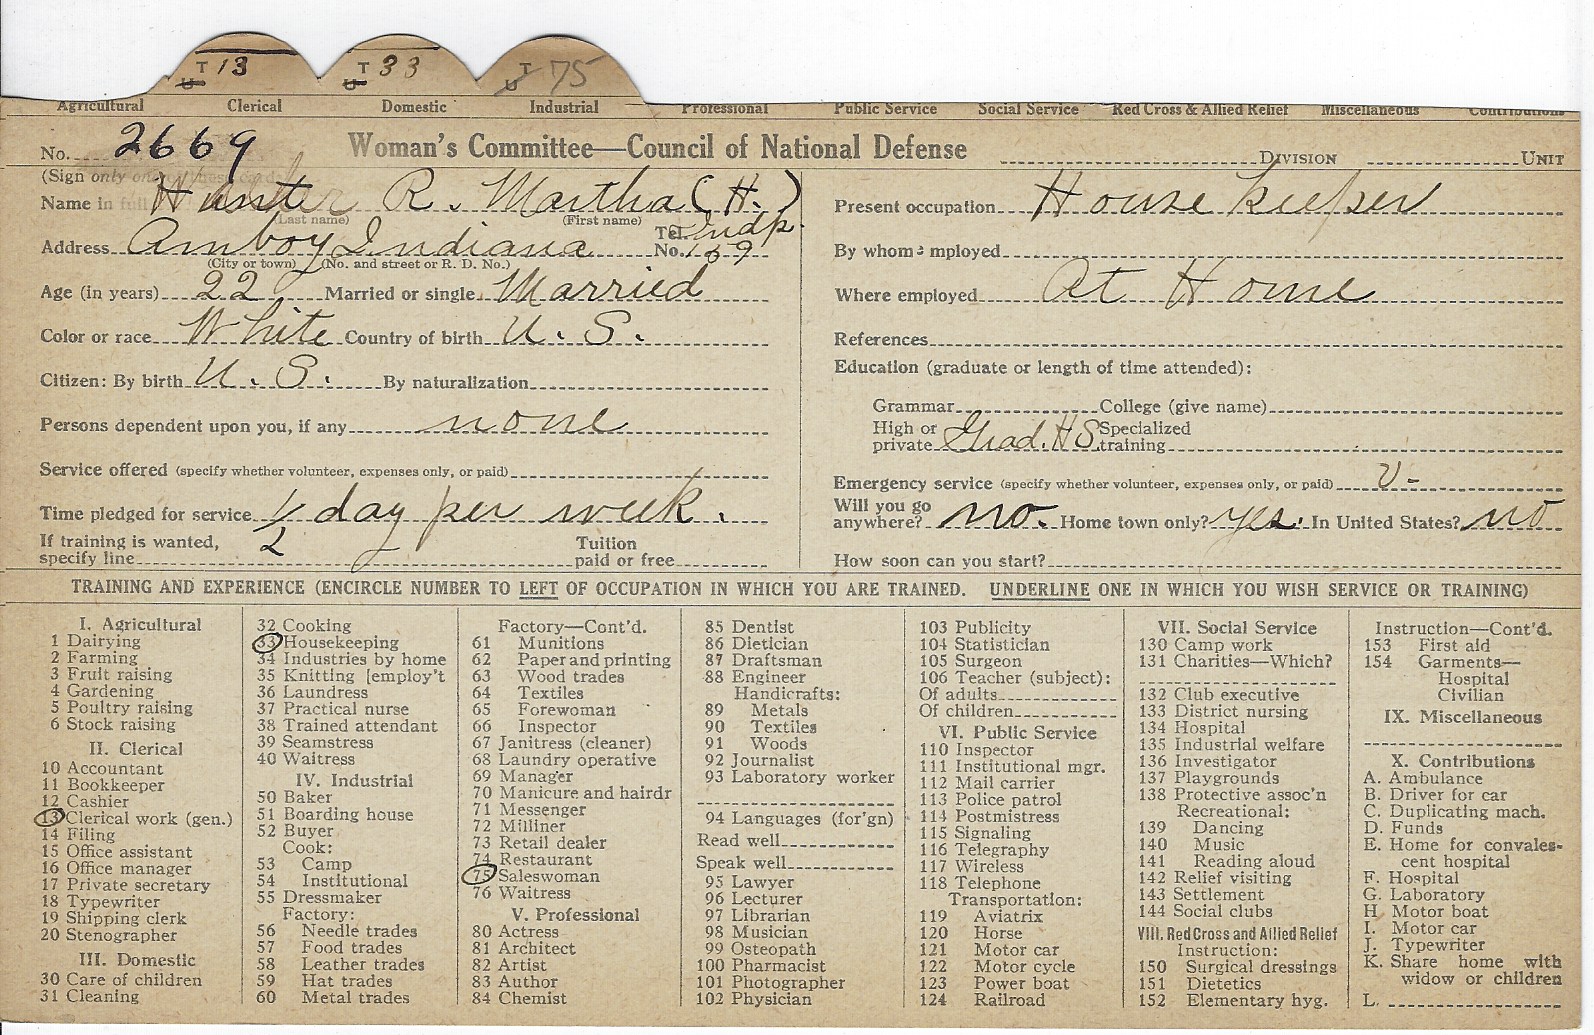 T 13 T 33 T 75
U U U
Agricultural Clerical Domestic Industrial Professional Public Service Social Service Red Cross & Allied Relief Miscellaneous Contributions
No. 2669 Woman's Committee—Council of National Defense DIVISION UNIT
(Sign only one
Name in full Hunter R. Martha (H.)
(Last name) (First name)
Address Amboy Indiana Tel. No. Indp. 159
(City or town) (No. and street or R. D. No.)
Age (in years) 22 Married or single Married
Color or race White Country of birth U. S.
Citizen: By birth U. S. By naturalization
Persons dependent upon you, if any none
Service offered (specify whether volunteer, expenses only, or paid)
Time pledged for service 1/2 day per week.
If training is wanted, Tuition
specify line paid or free
Present occupation House keeper
By whom employed
Where employed At Home
References
Education (graduate or length of time attended):
Grammar College (give name)
High or Specialized
private Grad. H S. training
Emergency service (specify whether volunteer, expenses only, or paid) V-
Will you go
anywhere? no. Home town only? yes. In United States? no
How soon can you start?
TRAINING AND EXPERIENCE (ENCIRCLE NUMBER TO LEFT OF OCCUPATION IN WHICH YOU ARE TRAINED. UNDERLINE ONE IN WHICH YOU WISH SERVICE OR TRAINING)
I. Agricultural
1 Dairying
2 Farming
3 Fruit raising
4 Gardening
5 Poultry raising
6 Stock raising
II. Clerical
10 Accountant
11 Bookkeeper
12 Cashier
13 Clerical work (gen.)
14 Filing
15 Office assistant
16 Office manager
17 Private secretary
18 Typewriter
19 Shipping clerk
20 Stenographer
III. Domestic
30 Care of children
31 Cleaning
32 Cooking
33 Housekeeping
34 Industries by home
35 Knitting [employ't
36 Laundress
37 Practical nurse
38 Trained attendant
39 Seamstress
40 Waitress
IV. Industrial
50 Baker
51 Boarding house
52 Buyer
Cook:
53 Camp
54 Institutional
55 Dressmaker
Factory:
56 Needle trades
57 Food trades
58 Leather trades
59 Hat trades
60 Metal trades
Factory—Cont'd.
61 Munitions
62 Paper and printing
63 Wood trades
64 Textiles
65 Forewoman
66 Inspector
67 Janitress (cleaner)
68 Laundry operative
69 Manager
70 Manicure and hairdr
71 Messenger
72 Milliner
73 Retail dealer
74 Restaurant
75 Saleswoman
76 Waitress
V. Professional
80 Actress
81 Architect
82 Artist
83 Author
84 Chemist
85 Dentist
86 Dietician
87 Draftsman
88 Engineer
Handicrafts:
89 Metals
90 Textiles
91 Woods
92 Journalist
93 Laboratory worker
94 Languages (for'gn)
Read well
Speak well
95 Lawyer
96 Lecturer
97 Librarian
98 Musician
99 Osteopath
100 Pharmacist
101 Photographer
102 Physician
103 Publicity
104 Statistician
105 Surgeon
106 Teacher (subject):
Of adults
Of children
VI. Public Service
110 Inspector
111 Institutional mgr.
112 Mail carrier
113 Police patrol
114 Postmistress
115 Signaling
116 Telegraphy
117 Wireless
118 Telephone
Transportation:
119 Aviatrix
120 Horse
121 Motor car
122 Motor cycle
123 Power boat
124 Railroad
VII. Social Service
130 Camp work
131 Charities—Which?
132 Club executive
133 District nursing
134 Hospital
135 Industrial welfare
136 Investigator
137 Playgrounds
138 Protective assoc'n
Recreational:
139 Dancing
140 Music
141 Reading aloud
142 Relief visiting
143 Settlement
144 Social clubs
VIII. Red Cross and Allied Relief
Instruction:
150 Surgical dressings
151 Dietetics
152 Elementary hyg.
Instruction—Cont'd.
153 First aid
154 Garments—
Hospital
Civilian
IX. Miscellaneous
X. Contributions
A. Ambulance
B. Driver for car
C. Duplicating mach.
D. Funds
E. Home for convales-
cent hospital
F. Hospital
G. Laboratory
H. Motor boat
I. Motor car
J. Typewriter
K. Share home with
widow or children
L.